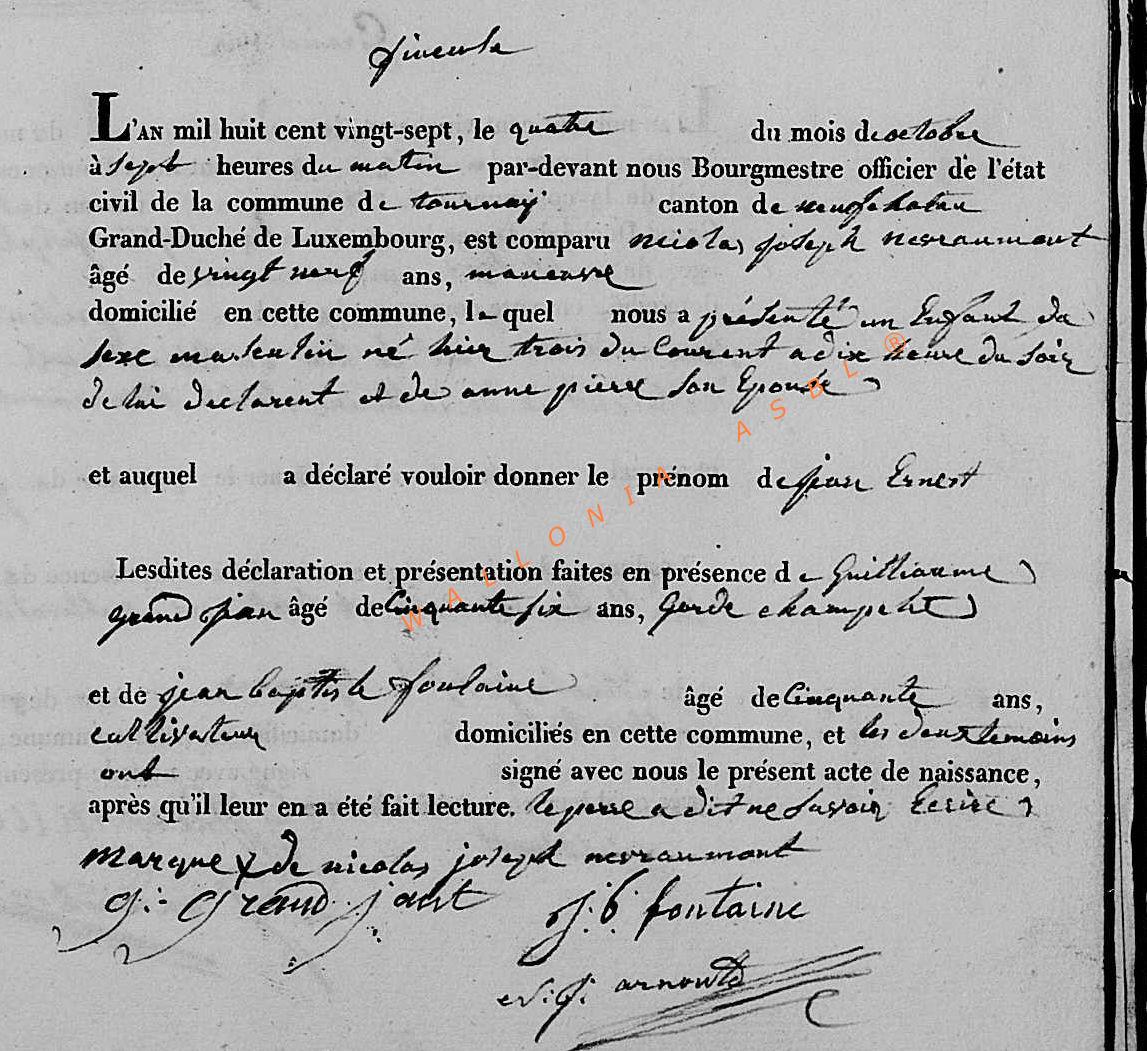 L'AN mil huit cent vingt-sept, le quatre du mois de octobre
à sept heures du matin par-devant nous Bourgmestre officier de l'état
civil de la commune de tournay canton de neufchateau
Grand-Duché de Luxembourg, est comparu nicolas joseph nevraumont
âgé de vingt neuf ans, maneuvre
domicilié en cette commune, le quel nous a présenté un Enfant du
sexe masculin né hier trois du Courent a dix heure du soir
de lui declarent et de anne pierre son Epouse
et auquel a déclaré vouloir donner le prénom de jean Ernest
Lesdites déclaration et présentation faites en présence de Guilliaume
grand jean âgé de Cinquante six ans, Garde champetre
et de jean baptiste fontaine âgé de Cinquante ans,
cultivateur domiciliés en cette commune, et les deux temoins
ont signé avec nous le présent acte de naissance,
après qu'il leur en a été fait lecture. le pere a dit ne savoir Ecrire
marque x de nicolas joseph nevraumont
g: grand jant j: b: fontaine
arnould
WALLONIA ASBL ®